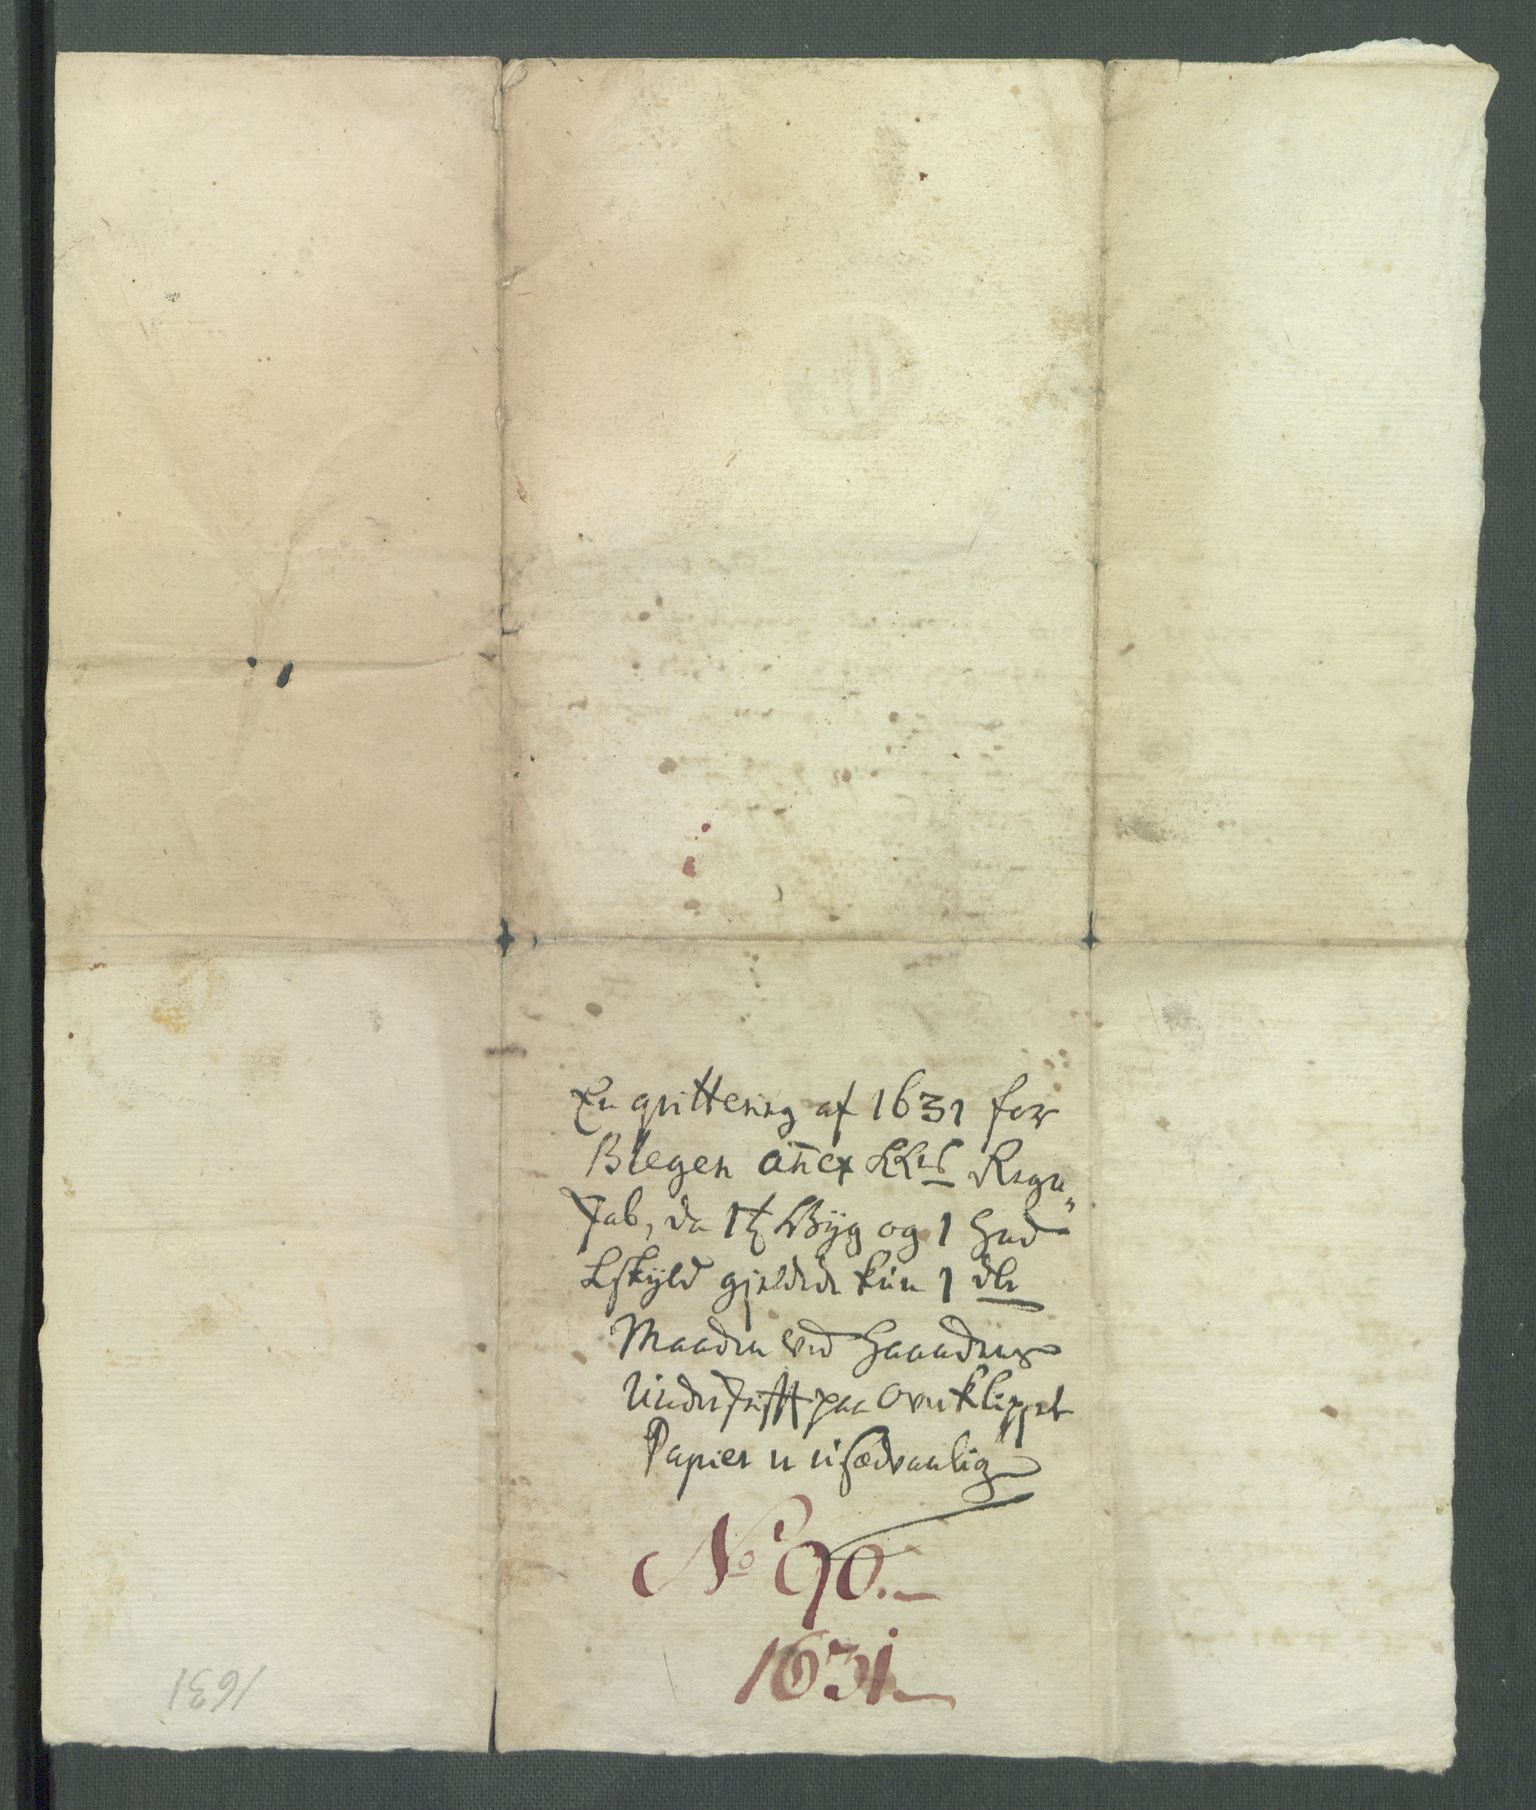 En qvittering af 1631 for
Blegen añex
da 1 Byg og 1 Hud
Lskyld gjelded kun 1 dlr
Maaden ved Haanden
Underskrift paa overklippet
Papier er usædvanlig
No 90.
1631.
1631